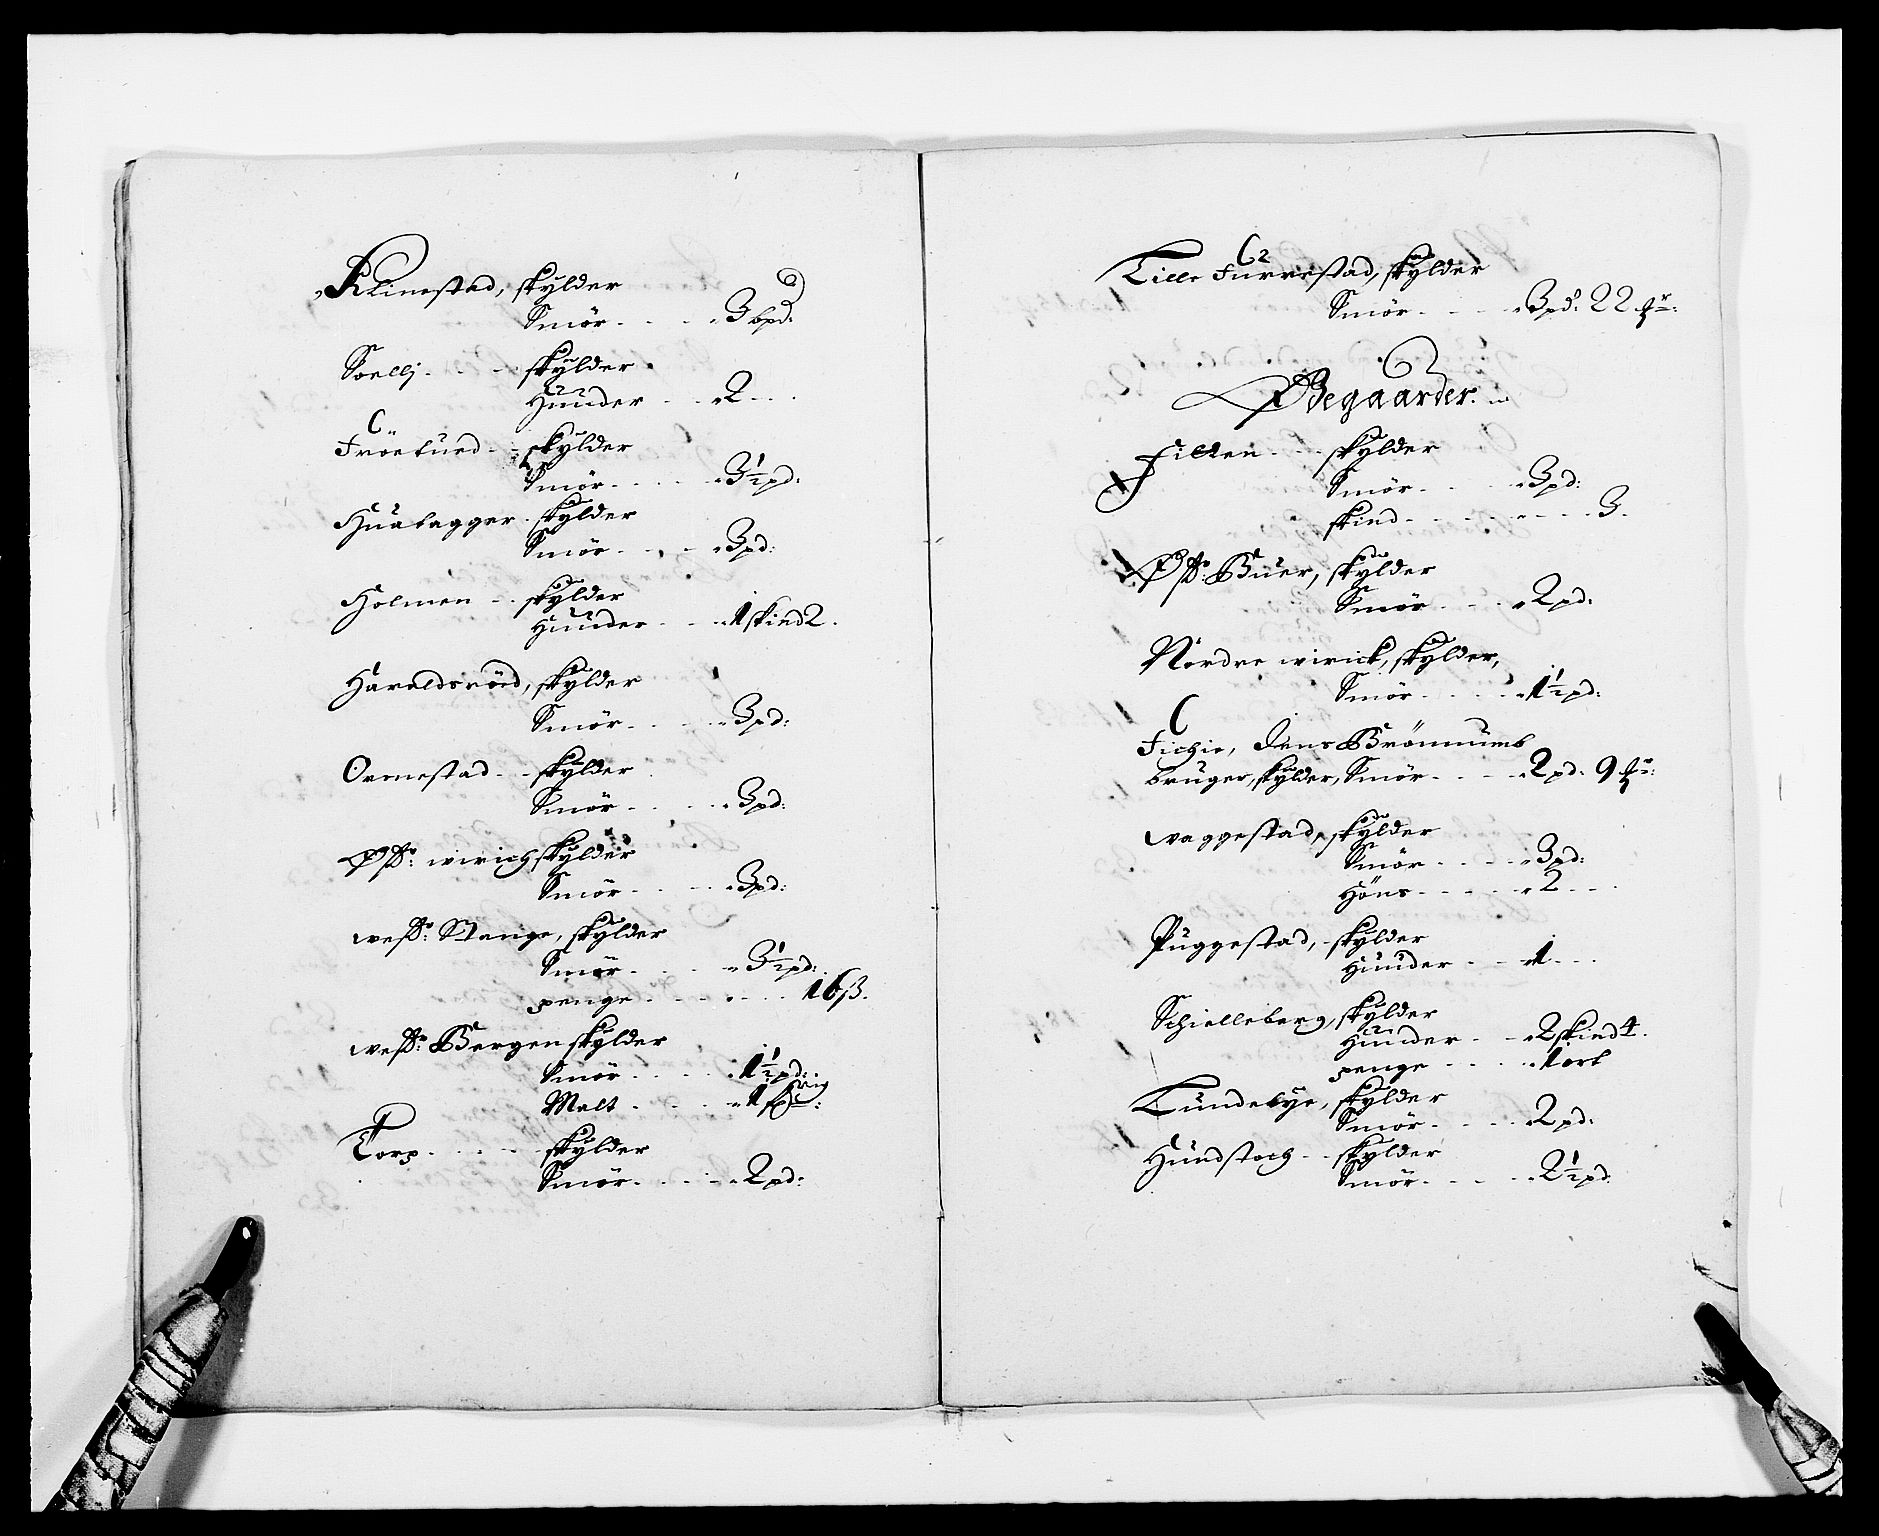 Klinestad, skylder
Smör - - - 3 bpd:
Soelli - - - skylder
Hunder - - 2 - -
Fröetued - - skylder
Smör - - - - 3½ pd:
Huabagger - skylder
Smör - - - 3 pd:
Holmen - - skylder
Hunder - - 1 skind 2.
Haraldsröd, skylder
Smör - - - 3 pd:
Ormestad - - skylder
Smör - - - 3 pd:
Øst: wirich skylder
Smör - - - 3 pd:
west: Stange, skylder
Smör - - - 3½ pd:
penge - - - - - 16 β.
west: Bergen skylder
Smör - - - - 1½ pd:
Malt - - - - 1
Torp - - - - skylder
Smör - - - - 2 pd:
Lille Furrestad, skylder
Smör - - - 3 pd: 22
Ødegaarder
Filken - - skylder
Smör - - - 3 pd:
skind - - - - - - 3.
Øst: Buer, skylder
Smör - - - 2 pd:
Nordre wirick, skylder,
Smör - - - - 1½ pd:
Fichie, Jens Brönnums
bruger, skylder, Smör - - - - 2 pd: 9
waggestad, skylder
Smör - - - - 3 pd:
Höns - - - - 2 - -
Püggestad, skylder
Hunder - - 1 - -
Schielleberg, skylder
Hunder - - 2 skind 4.
penge - - - - 1 ort
Lundebye, skylder
Smör - - - - 2 pd:
Hundstoch - - skylder
Smör - - - - 2½ pd.